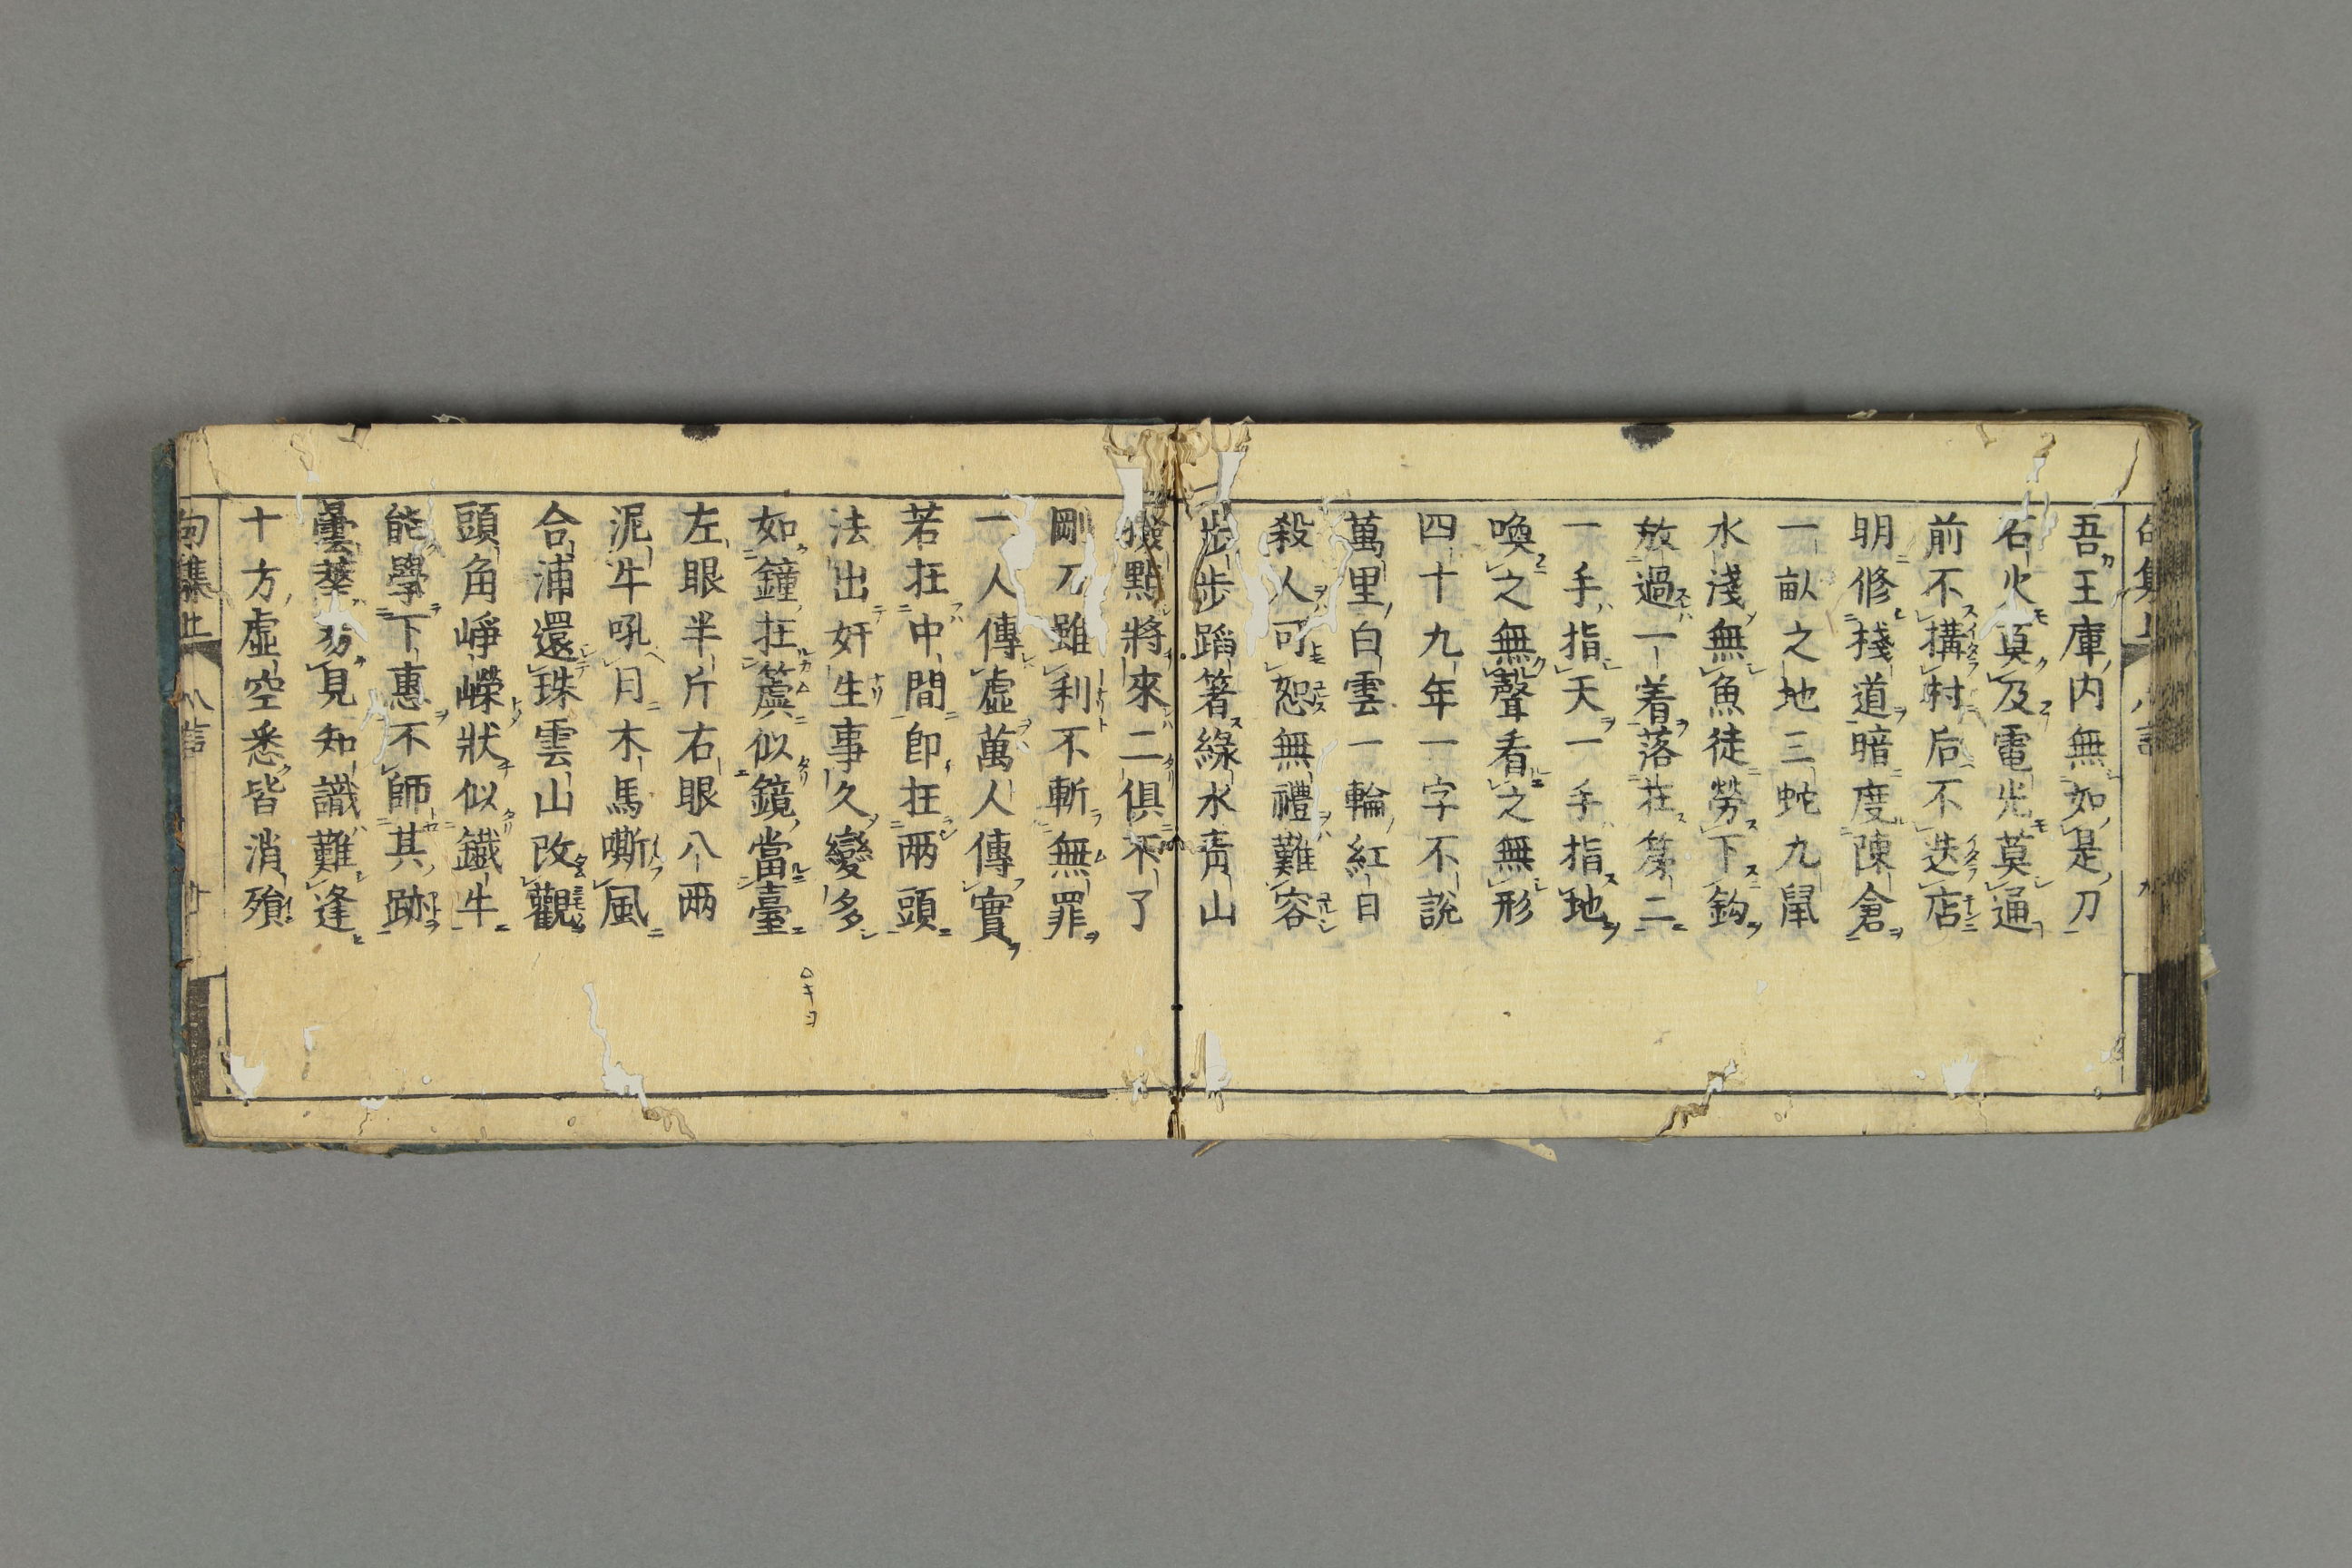 吾王庫内無如是刀
石火莫及電光莫通
前不搆村后不迭店
明修棧道暗度陳倉
一畝之地三蛇九鼠
水淺無魚徒勞下鈎
放過一着落在第二
一手指天一手指地
喚之無聲看之無形
四十九年一字不說
萬里白雲一輪紅日
殺人可恕無禮難容
步步蹈着綠水青山
撿點將來二俱不了
剛刀雖利不斬無罪
一人傳虛萬人傳實
若在中間即在兩頭
法出奸生事久變多
如鐘在簴似鏡當臺
左眼半斤右眼八兩
泥牛吼月木馬嘶風
合浦還珠雲山改觀
頭角崢嶸狀似鐵牛
能學下惠不師其跡
曇華易見知識難逢
十方虛空悉皆消殞
句集上 八言